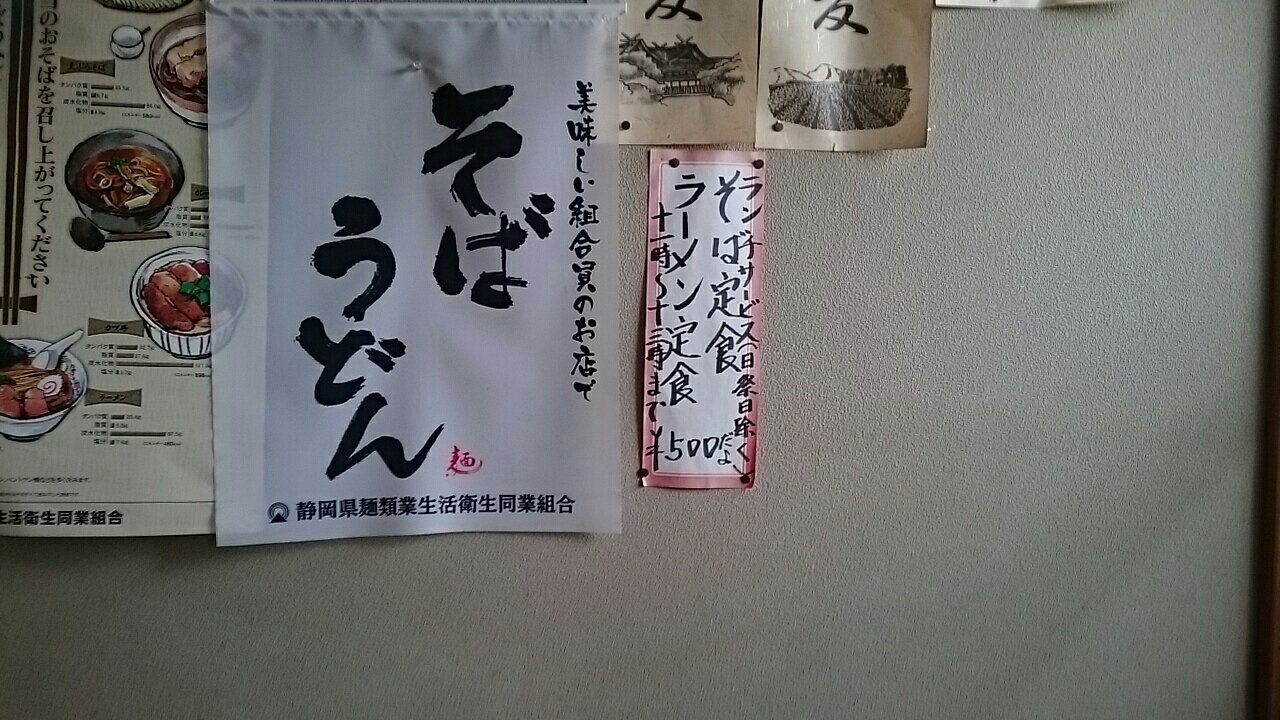 美味しい組合員のお店で
そば
うどん
麺
静岡県麺類業生活衛生同業組合
ランチサービス(日祭日除く)
そば定食
ラーメン定食
十一時〜十三時まで
¥500だよ
のおそばを召し上がってください
タンパク質
脂質
炭水化物
塩分
カツ丼
タンパク質
脂質
炭水化物
塩分
ラーメン
タンパク質
脂質
炭水化物
塩分
生活衛生同業組合